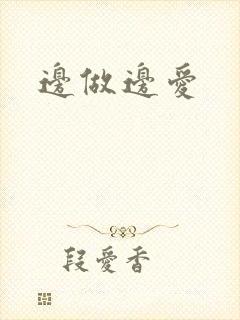 邊做邊愛
段愛香